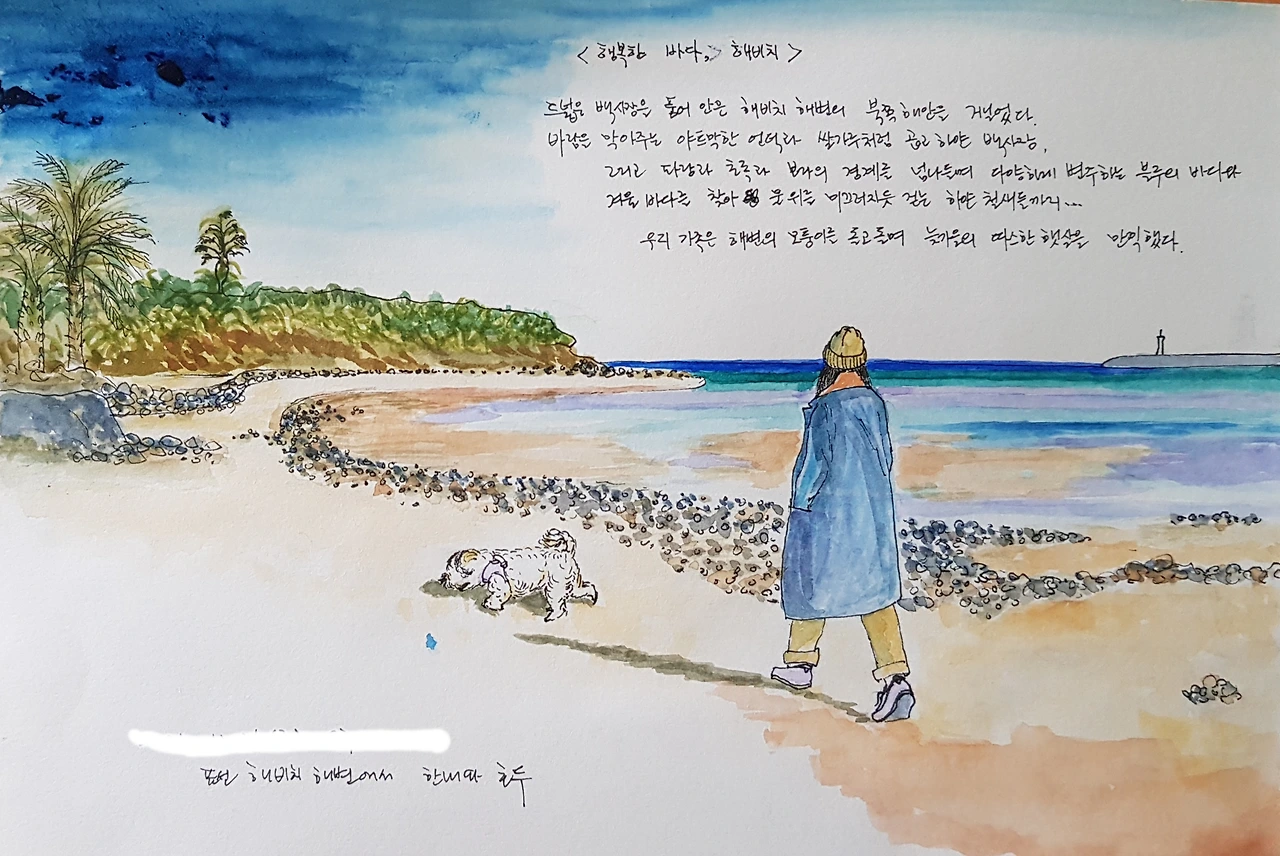 <행복한 바다, 해비치>
드넓은 백사장을 품어 안은 해비치 해변의 북쪽 해안을 거닐었다.
바람을 막아주는 야트막한 언덕과 쌀가루처럼 곱고 하얀 백사장,
그리고 파랑과 초록과 보라의 경계를 넘나들며 다양하게 변주하는 블루의 바다와
겨울 바다를 찾아 물 위를 미끄러지듯 걷는 하얀 철새들까지...
우리 가족은 해변의 모퉁이를 돌고 돌며 늦가을의 따스한 햇살을 만끽했다.
표선 해비치 해변에서 한나와 호두